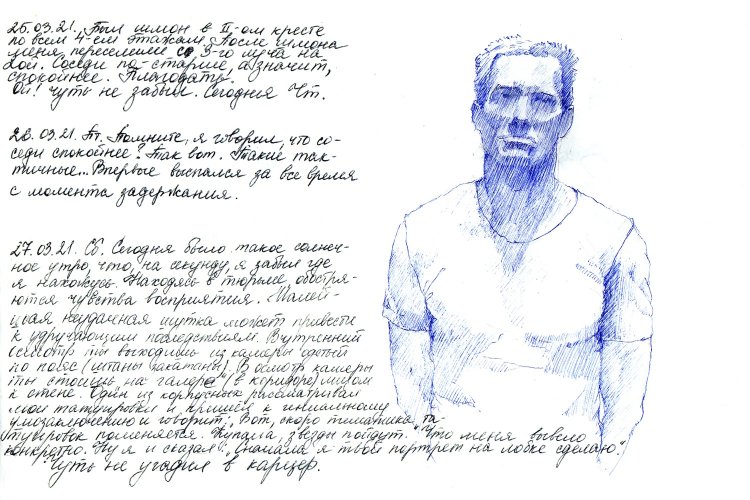 25.03.21. Был шмон в II-ом кресте
по всем 4-ем этажам. После шмона
меня переселили со 3-го луча на
2ой. Соседи по-старше, а значит,
спокойнее. Благодать.
Ой! Чуть не забыл. Сегодня Чт.
28.03.21. Пт. Помните, я говорил, что со-
седи спокойнее? Так вот. Такие так-
тичные... Впервые выспался за все время
с момента задержания.
27.03.21. Сб. Сегодня было такое солнеч-
ное утро, что, на секунду, я забыл где
я нахожусь. Находясь в тюрьме, обостря-
ются чувства восприятия. Малей-
шая неудачная шутка может привести
к удручающим последствиям. Внутренний
осмотр ты выходишь из камеры одетый
по пояс (штаны закатаны). В осмотр камеры
ты стоишь на "галере" (в коридоре) лицом
к стене. Один из корпусных рассматривал
мои татуировки и пришёл к гениальному
умозаключению и говорит: "Вот, скоро тематика та-
туировок поменяется. Купола, звезды пойдут." Что меня выбило
конкретно. Ну я и сказал: "сначала я твой портрет на лобке сделаю."
Чуть не угадил в карцер.